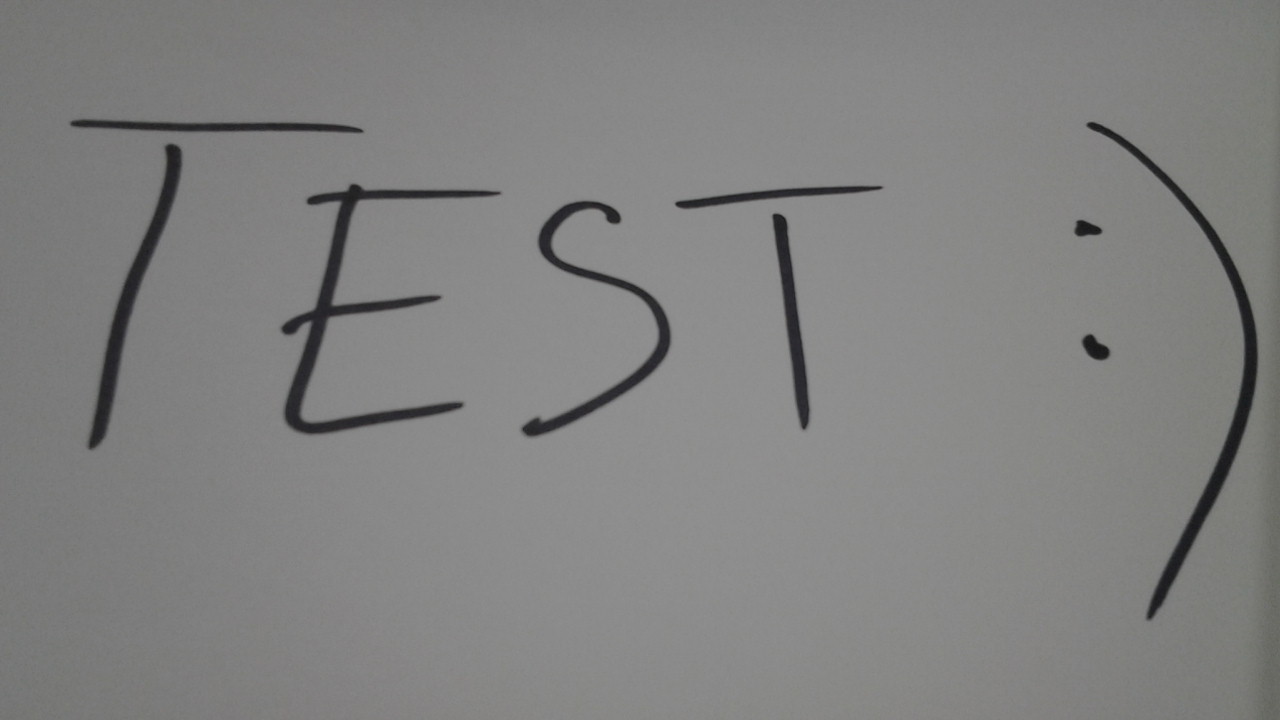 TEST :)